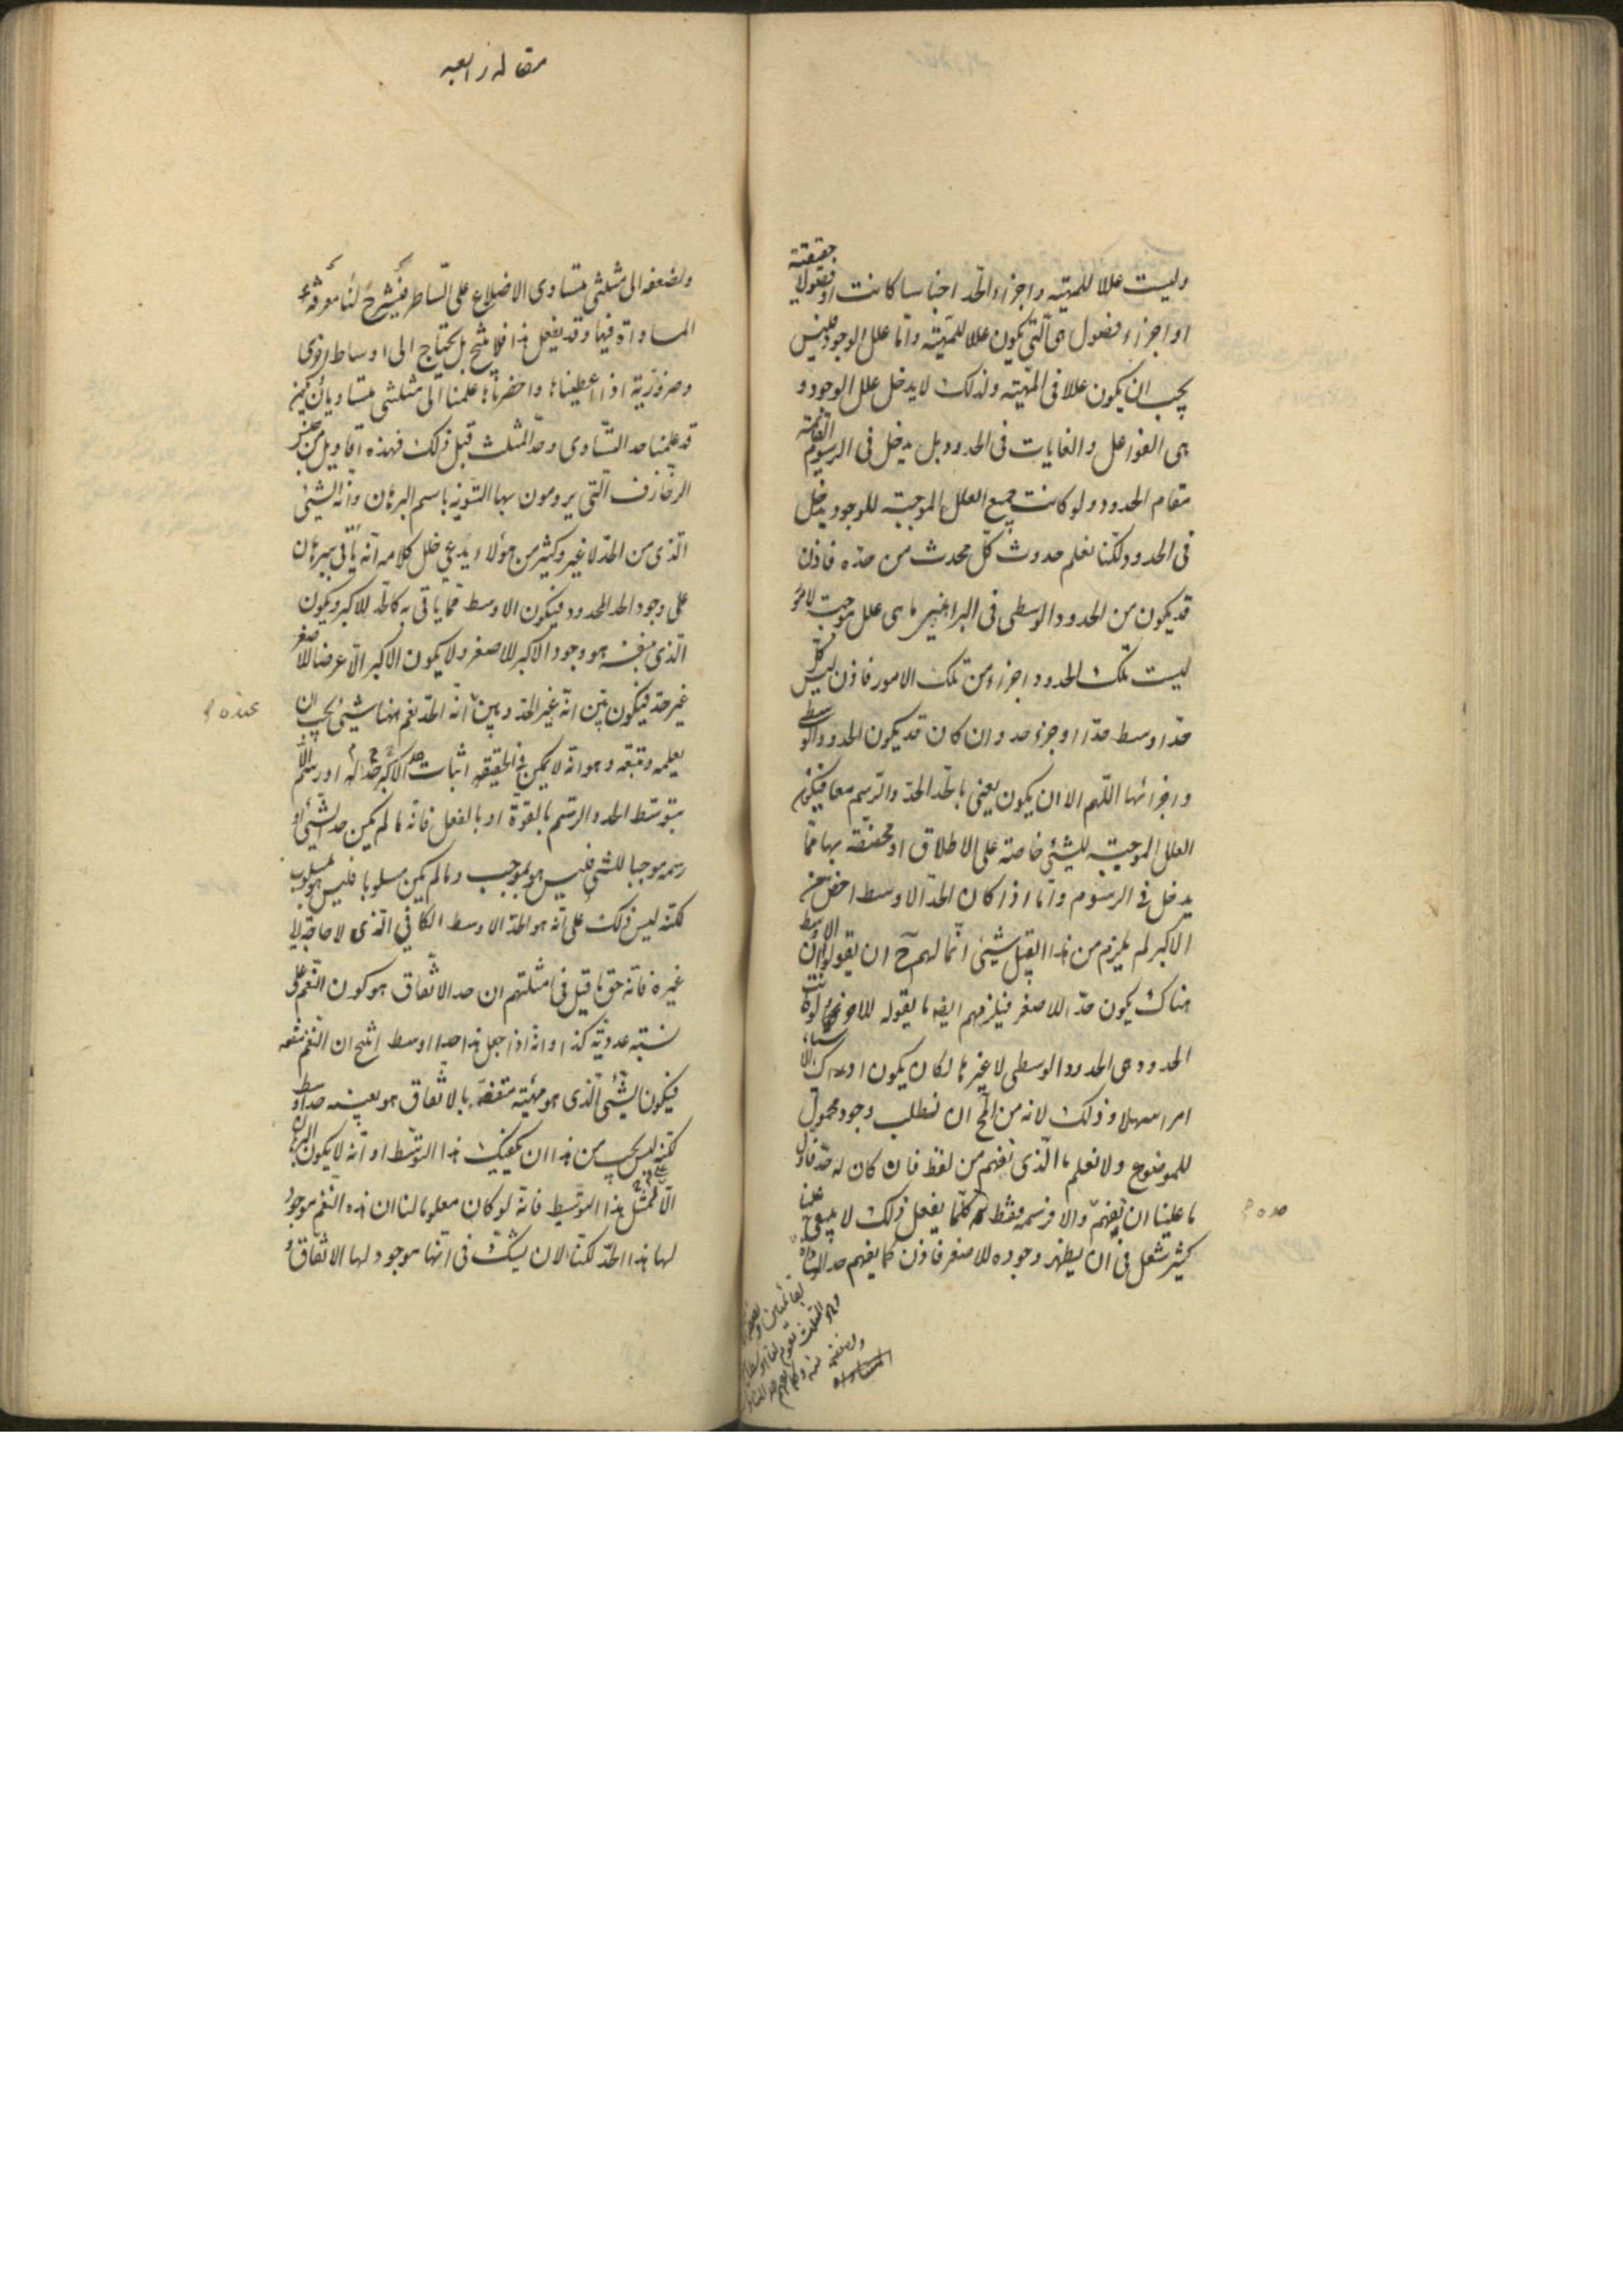 وليست عللا للمهيته واجزاء الحد اجناسا كانت او فصولا حقيقته
او اجزاء فصول هى التى يكون عللا للمهيته واما علل الوجود فليس
يجب ان يكون عللا فى المهيته ولذلك لا يدخل علل الوجود و
هى الفواعل والغايات فى الحدود بل يدخل فى الرسوم القائمة
مقام الحدود ولو كانت جميع العلل الموجبته للوجود يدخل
فى الحدود لكنا نعلم حدوث كل محدث من حده فاذن
قد يكون من الحدود الوسطى فى البراهين ما هى علل موجبته لامور
ليست تلك الحدود اجزاء من تلك الامور فاذن ليس كل
حد اوسط حدا او جزء حد وان كان قد يكون الحدود الوسطى
واجزائها اللهم الا ان يكون يعنى بالحد الحد والرسم معا فيكون
العلل الموجبته للشيئ خاصته على الاطلاق او مخصته بها مما
يدخل فى الرسوم واما اذا كان الحد الاوسط اخص من
الاكبر لم يلزم من هذا القبيل شيئ انما لهم ح ان يقولوا ان الاوسط
هناك يكون حدا للاصغر فيلزمهم ايضا ما يقوله للاخر ولو كانت
الحدود هى الحدود الوسطى لا غيرها لكان يكون ادراك الاشياء
امرا سهلا وذلك لانه من المح ان نطلب وجود محمول
للموضوع ولا نعلم ما الذى نفهم من لفظ فان كان له حد فاول
ما علينا ان نفهم والا فرسمه فقط فكلما يفعل ذلك لا يبقى ح علينا
كثير شغل فى ان يظهر وجوده للاصغر فاذن كما يفهم حد المساواة
حده
المساواة
مقاله رابعه
ونضعه الى مثلثى متساوى الاضلاع على الساطر فيشرح لنا معرفة
المساواة فيها وقد يفعل هذا فلا ينتج بل يحتاج الى اوساط اخرى
وضرورية اذا اعطيناها واحضرناها علمنا الى مثلثى متساويان فيكون
قد علمنا حد التساوى وحد المثلث قبل ذلك فهذه اقاويل من جنس
الزخارف التى يرومون بها التنويه باسم البرهان وانه الشيئ
الذى من الحد لا غير وكثير من هؤلاء يدعى خلل كلامه انه يأتى ببرهان
على وجود الحد للمحدود فيكون الاوسط مما يأتى به كالحد للاكبر ويكون
الذى مبرهنه هو وجود الاكبر للاصغر ولا يكون الاكبر الا عرضا للاصغر
غير حد فيكون بين انه غير الحد وبين انه الحد نعم هنها شيئ يجب ان
عنده
يعلمه ونتبعه وهو انه لا يمكن فى الحقيقه اثبات الاكبر حدا له او رسم الا
بتوسط الحد والرسم بالقوة او بالفعل فانه ما لم يكن حد الشيئ او
رسمه موجبا للشئ فليس هو بموجب وما لم يكن مسلوبا فليس هو بمسلوب
لكنه ليس ذلك على انه هو الحد الاوسط الكافى الذى لا حاجة الى
غيره فانه حق ما قيل فى امثلتهم ان حد الاتفاق هو كون النغم على
نسبته عددية كذا وانه اذا جعل هذا حدا اوسط انتج ان النغم متفقه
فيكون الشيئ الذى هو مهيته متفقه بالاتفاق هو بعينه حد اوسط
لكنه ليس يجب من هذا ان يكفيك هذا التوسط او انه لا يكون البرهان
الا بمثل هذا التوسيط فانه لو كان معلوما لنا ان هذه النغم موجود
لها هذا الحد لكنا لان يشك فى انها موجود لها الاتفاق و